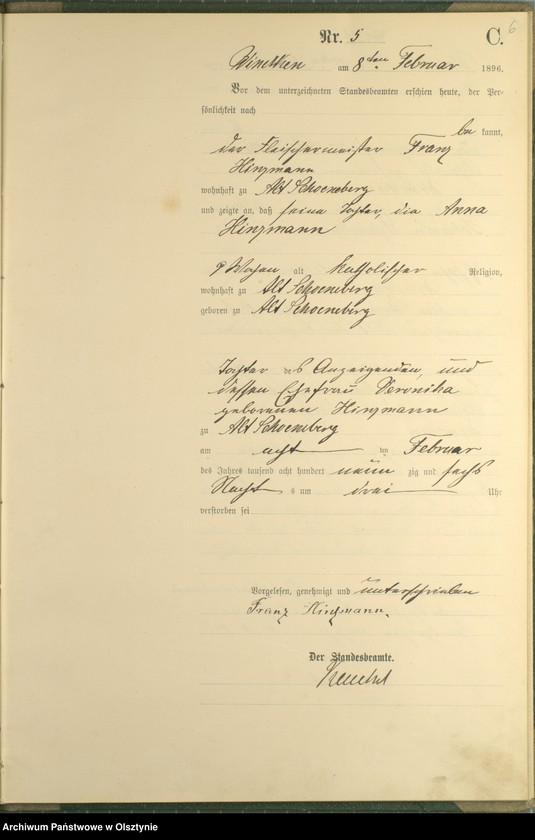 6
Nr. 5 C.
am 8ten Februar 1896.
Vor dem unterzeichneten Standesbeamten erschien heute, der Per-
sönlichkeit nach
be kannt,
der Fleischermeister Franz
Hinzmann
wohnhaft zu Alt Schoeneberg
und zeigte an, daß seine Tochter, die Anna
Hinzmann
9 Wochen alt katholischer Religion,
wohnhaft zu Alt Schoeneberg
geboren zu Alt Schoeneberg
Tochter des Anzeigenden, und
dessen Ehefrau Veronika
geborenen Hinzmann
zu Alt Schoeneberg
am acht ten Februar
des Jahres tausend acht hundert neun zig und sechs
Nacht s um drei Uhr
verstorben sei
Vorgelesen, genehmigt und unterschrieben
Franz Hinzmann.
Der Standesbeamte.
Archiwum Państwowe w Olsztynie